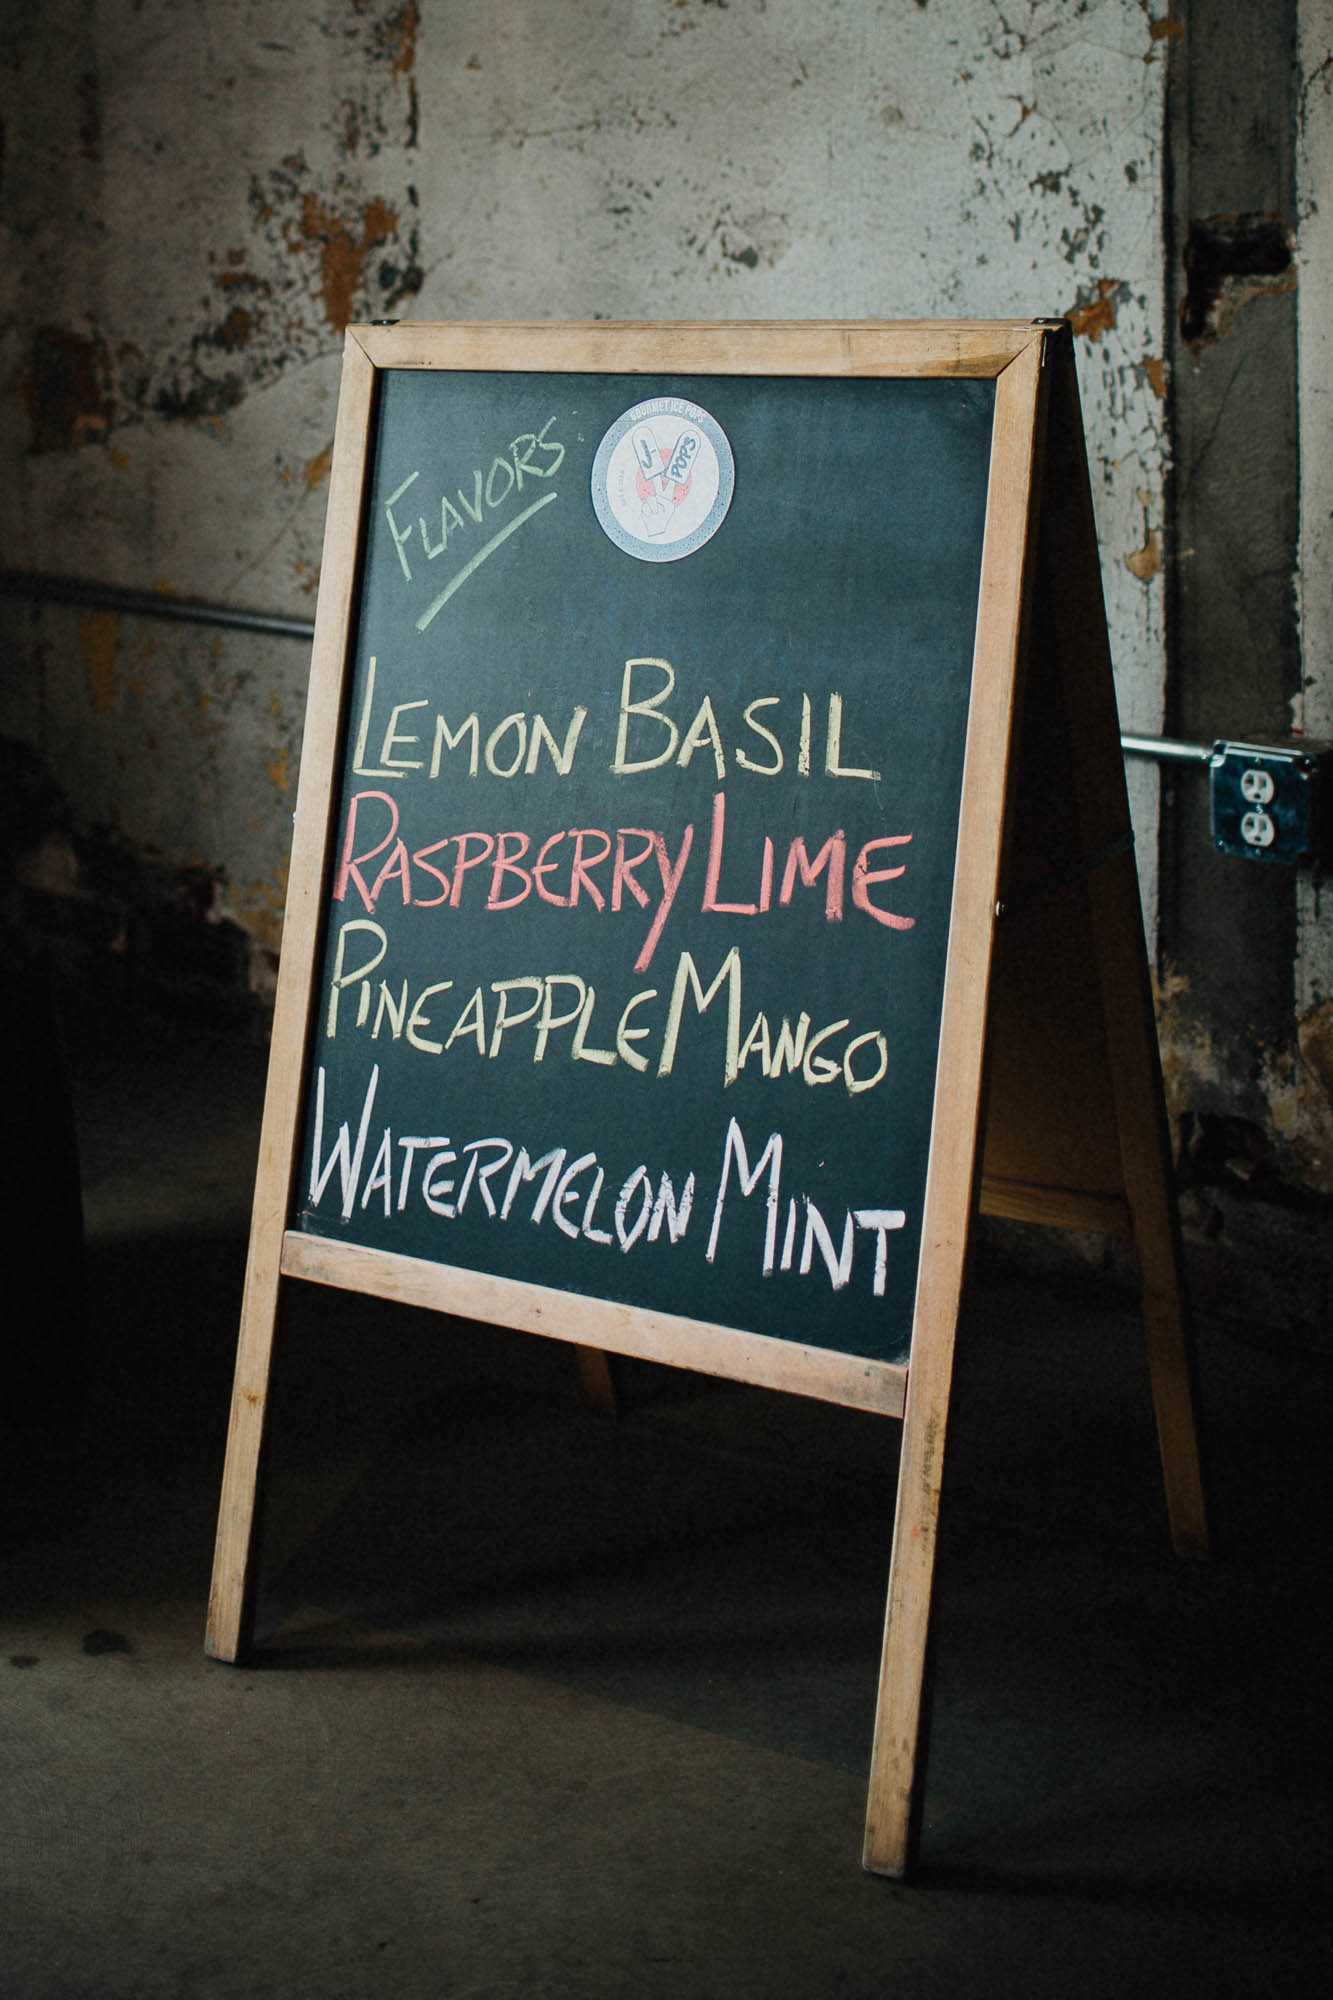 FLAVORS:
GOURMET ICE POPS
J-
POPS
LEMON BASIL
RASPBERRY LIME
PINEAPPLE MANGO
WATERMELON MINT